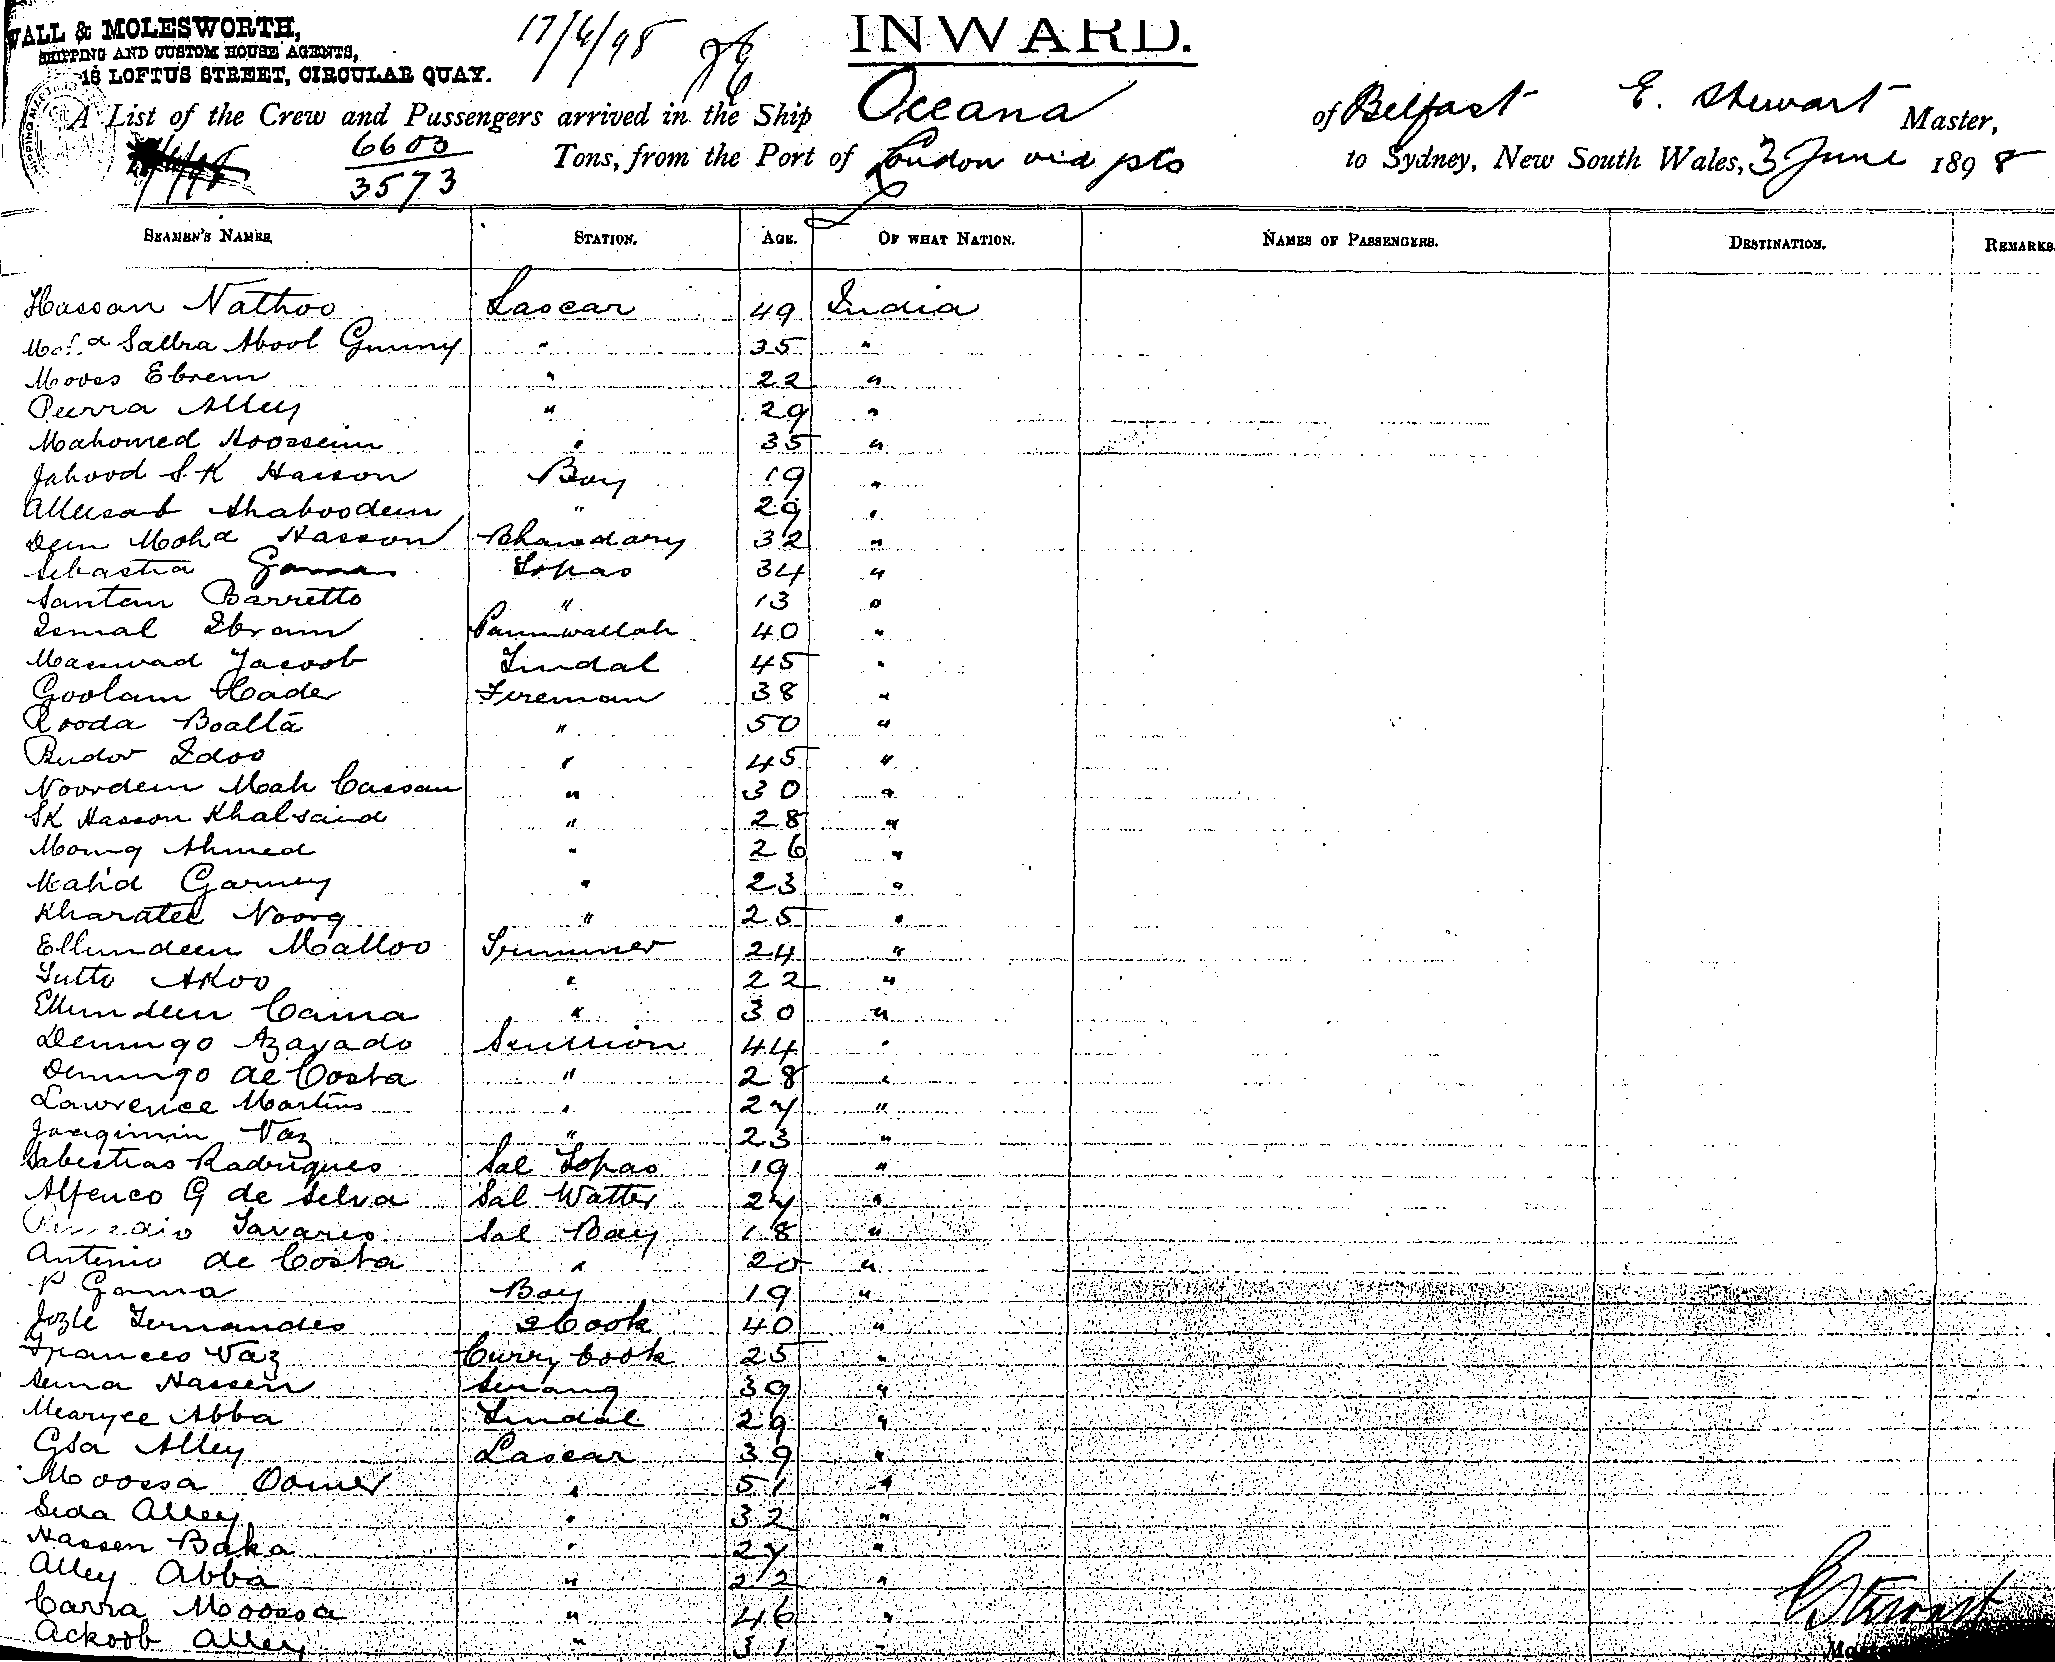 WALL & MOLESWORTH,
SHIPPING AND CUSTOM HOUSE AGENTS,
18 LOFTUS STREET, CIRCULAR QUAY.
17/6/98
INWARD.
A List of the Crew and Passengers arrived in the Ship Oceana of Belfast E. Stewart Master,
6603
3573 Tons, from the Port of London via pts to Sydney, New South Wales, 3 June 1898
SEAMEN'S NAMES. STATION. AGE. OF WHAT NATION. NAMES OF PASSENGERS. DESTINATION. REMARKS.
Hassan Nathoo Lascar 49 India
Salbra Abool Gunny " 35 "
Mooss Ebrem " 22 "
Peerra Alley " 29 "
Mahomed Hoossein " 35 "
Jahood S.K Hasson Boy 19 "
Alleesab Shaboodeen " 29 "
Deen Mohd Hasson Bhandary 32 "
Sebastia Gama Topas 34 "
Santan Barretto " 13 "
Ismal Ibram Paniwallah 40 "
Jacoob Tindal 45 "
Goolam Kader Fireman 38 "
Rooda Boalla " 50 "
Budor Idoo " 45 "
Noordeen Mah Cassam " 30 "
SK Hasson Khalsaid " 28 "
Ahmed " 26 "
Mahd Garney " 23 "
Kharatee Noorg " 25 "
Ellumdeen Malloo Trimmer 24 "
Tutto Akoo " 22 "
Ellumdeen Cama " 30 "
Demingo Azavado Scullion 44 "
Demingo de Costa " 28 "
Lawrence Martins " 24 "
Joaqimin Vaz " 23 "
Sabestias Radrigues Sal Topas 19 "
Alfenco G de Selva Sal Watter 24 "
Tavares Sal Boy 18 "
Antonio de Costa " 20 "
P Gama Boy 19 "
Jozle Fernandes 2 Cook 40 "
Frances Vaz Curry Cook 25 "
Sema Hassen Serang 39 "
Mearyce Abba Tindal 29 "
Gsa Alley Lascar 39 "
Moossa Oomer " 51 "
Seda Alley " 32 "
Hassen Baka " 27 "
Alley Abba " 22 "
Carra Moossa " 46 "
Ackoob Alley " 31 "
E Stewart